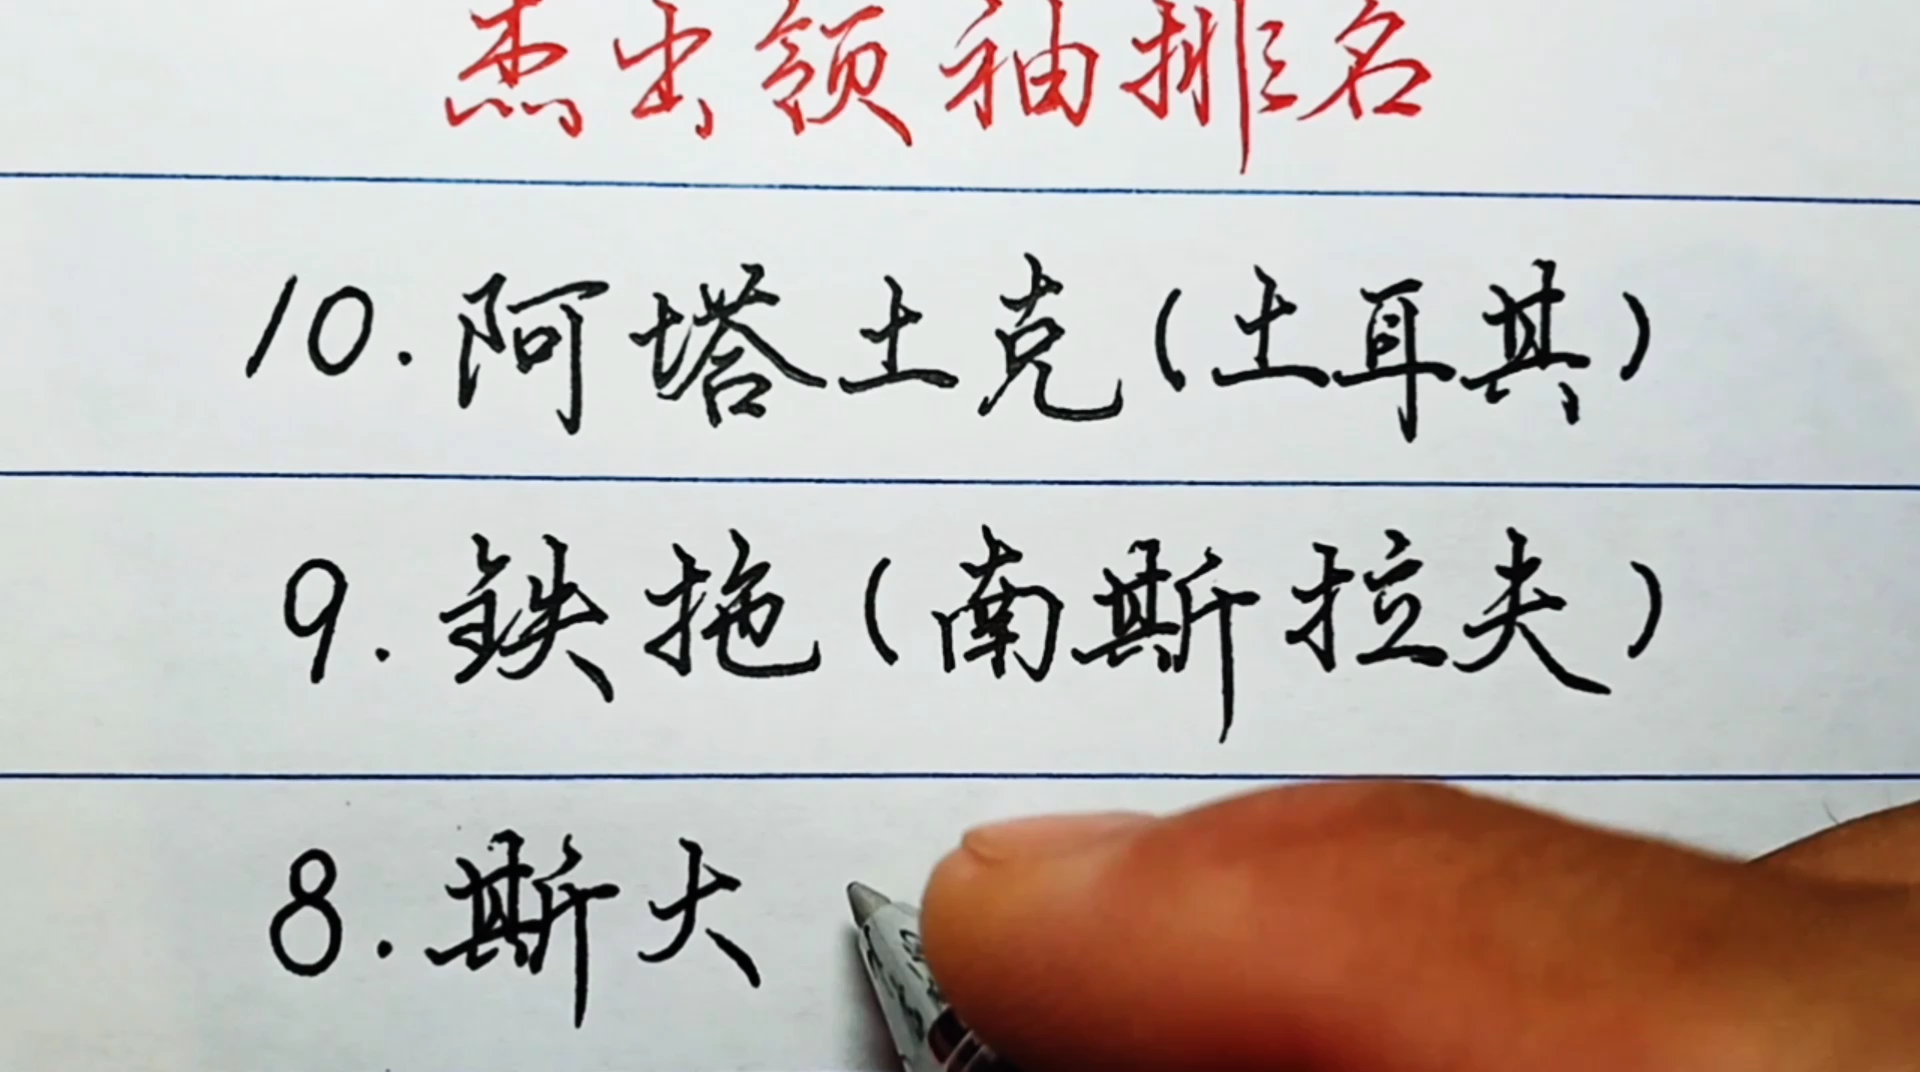 杰出领袖排名
10.阿塔土克(土耳其)
9.铁拖(南斯拉夫)
8.斯大